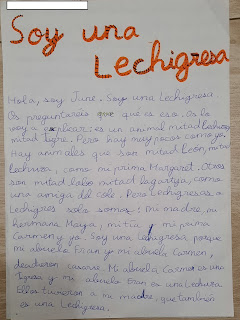 Soy una
Lechigresa
Hola, soy June. Soy una Lechigresa.
Os preguntareis que es eso. Os lo
voy a explicar: es un animal mitad lechuza
mitad tigre. Pero hay muy pocos como yo.
Hay animales que son mitad león, mitad
lechuza, como mi prima Margaret. Otros
son mitad lobo mitad lagartija, como
una amiga del cole. Pero Lechigresas o
Lechigres solo somos: mi madre, mi
hermana Maya, mi tía y mi prima
Carmen y yo. Soy una Lechigresa porque
mi abuelo Fran y mi abuela Carmen,
decidieron casarse. Mi abuela Carmen es una
tigresa y mi abuelo Fran es una lechuza.
Ellos tuvieron a mi madre, que también
es una Lechigresa.